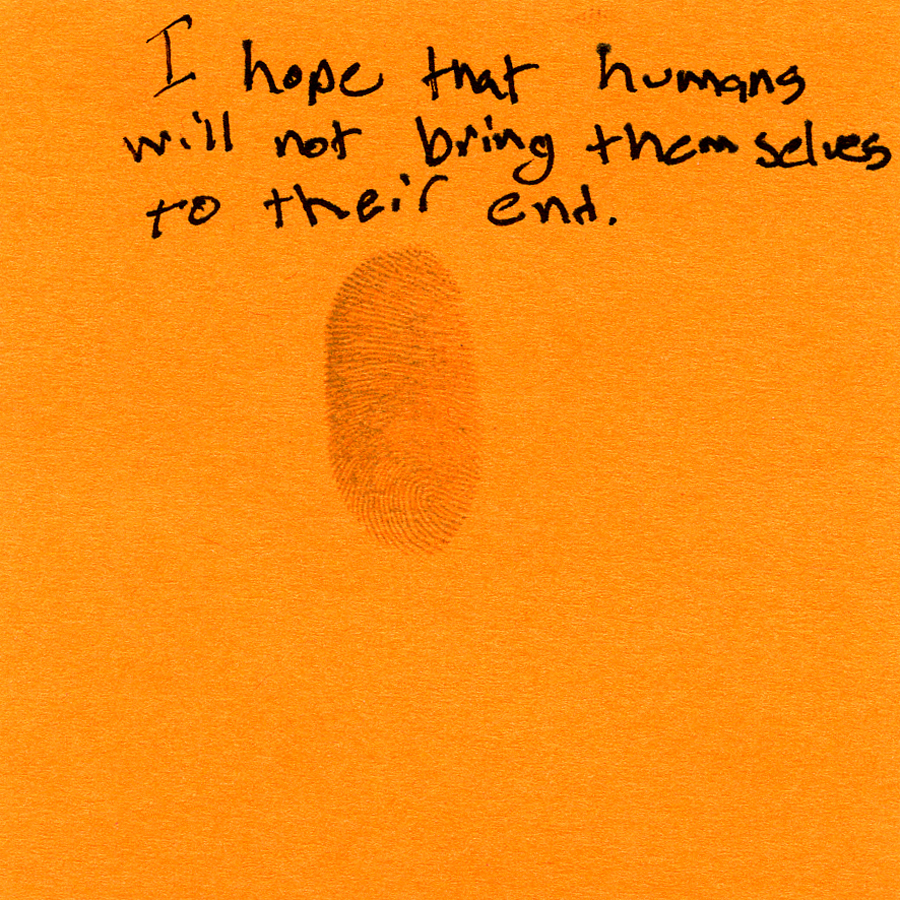 I hope that humans
will not bring themselves
to their end.